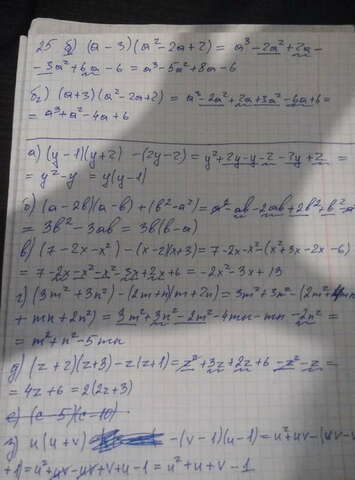 25 б) (a - 3)(a² - 2a + 2) = a³ - 2a² + 2a -
- 3a² + 6a - 6 = a³ - 5a² + 8a - 6
б₂) (a+3)(a² - 2a + 2) = a³ - 2a² + 2a + 3a² - 6a + 6 =
= a³ + a² - 4a + 6
а) (y - 1)(y + 2) - (2y - 2) = y² + 2y - y - 2 - 2y + 2 =
= y² - y = y(y - 1)
б) (a - 2b)(a - b) + (b² - a²) = a² - ab - 2ab + 2b² + b² - a²
= 3b² - 3ab = 3b(b - a)
в) (7 - 2x - x²) - (x - 2)(x + 3) = 7 - 2x - x² - (x² + 3x - 2x - 6)
= 7 - 2x - x² - x² - 3x + 2x + 6 = - 2x² - 3x + 13
г) (3m² + 3n²) - (2m + n)(m + 2n) = 3m² + 3n² - (2m² + 4mn
+ mn + 2n²) = 3m² + 3n² - 2m² - 4mn - mn - 2n² =
= m² + n² - 5mn
д) (z + 2)(z + 3) - z(z + 1) = z² + 3z + 2z + 6 - z² - z =
= 4z + 6 = 2(2z + 3)
е) (c - 5)(c - 10)
з) u(u + v) - (v - 1)(u - 1) = u² + uv - (uv - v
+ 1) = u² + uv - uv + v + u - 1 = u² + u + v - 1